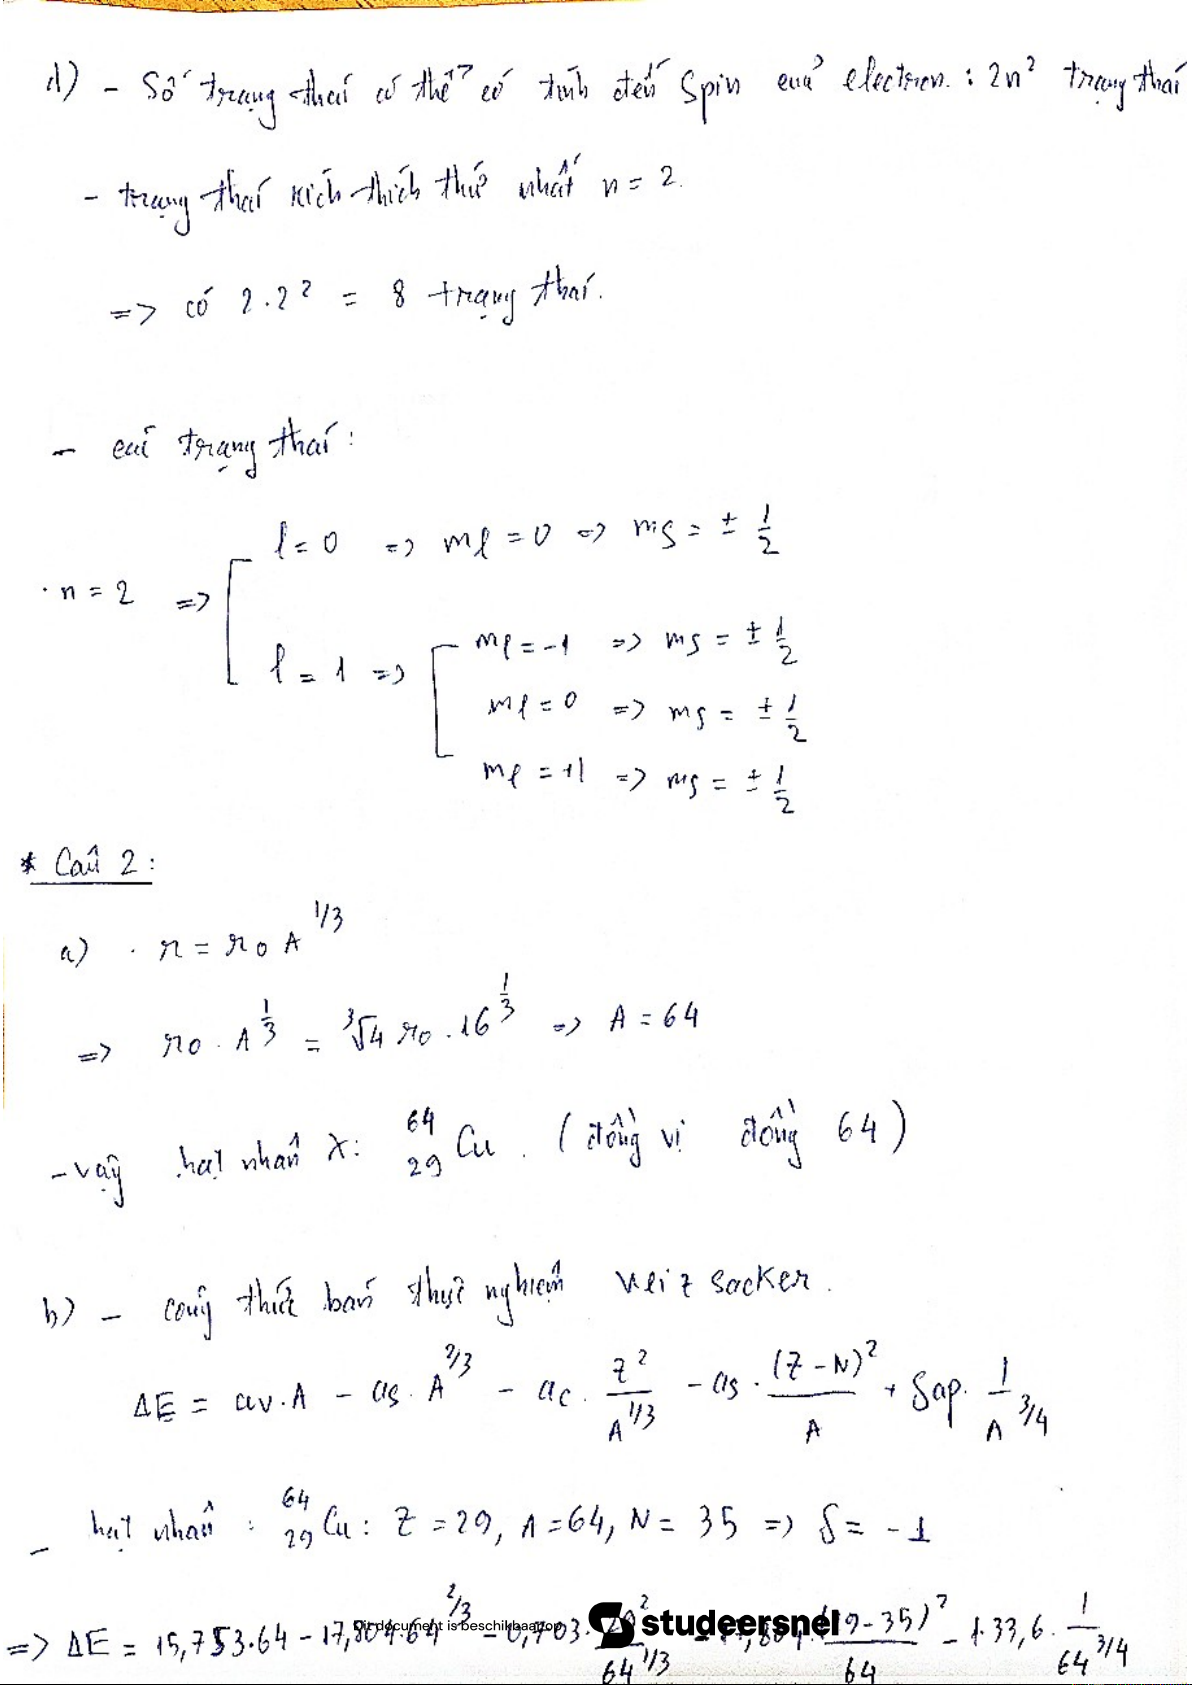 d) - Số trạng thái có thể có tính đến Spin của electron : 2n² trạng thái
- trạng thái kích thích thứ nhất n = 2.
=> có 2.2² = 8 trạng thái.
- các trạng thái :
l = 0 => ml = 0 => ms = ± 1/2
. n = 2 =>
l = 1 => ml = -1 => ms = ± 1/2
ml = 0 => ms = ± 1/2
ml = +1 => ms = ± 1/2
* Câu 2 :
a) . r = r0 A^1/3
=> r0 . A^1/3 = ∛4 r0 . 16^1/3 => A = 64
- vậy hạt nhân X: ⁶⁴₂₉Cu . ( đồng vị đồng 64 )
b) - công thức bán thực nghiệm Weizsacker .
ΔE = av.A - as.A^2/3 - ac . Z²/A^1/3 - as . (Z - N)²/A + δap . 1/A^3/4
- hạt nhân : ⁶⁴₂₉Cu : Z = 29, A = 64, N = 35 => δ = -1
=> ΔE = 15,753.64 - 17,804.64^2/3 - 0,703. 29²/64^1/3 - (29-35)²/64 - 1.33,6 . 1/64^3/4
Dit document is beschikbaar op
studeersnel